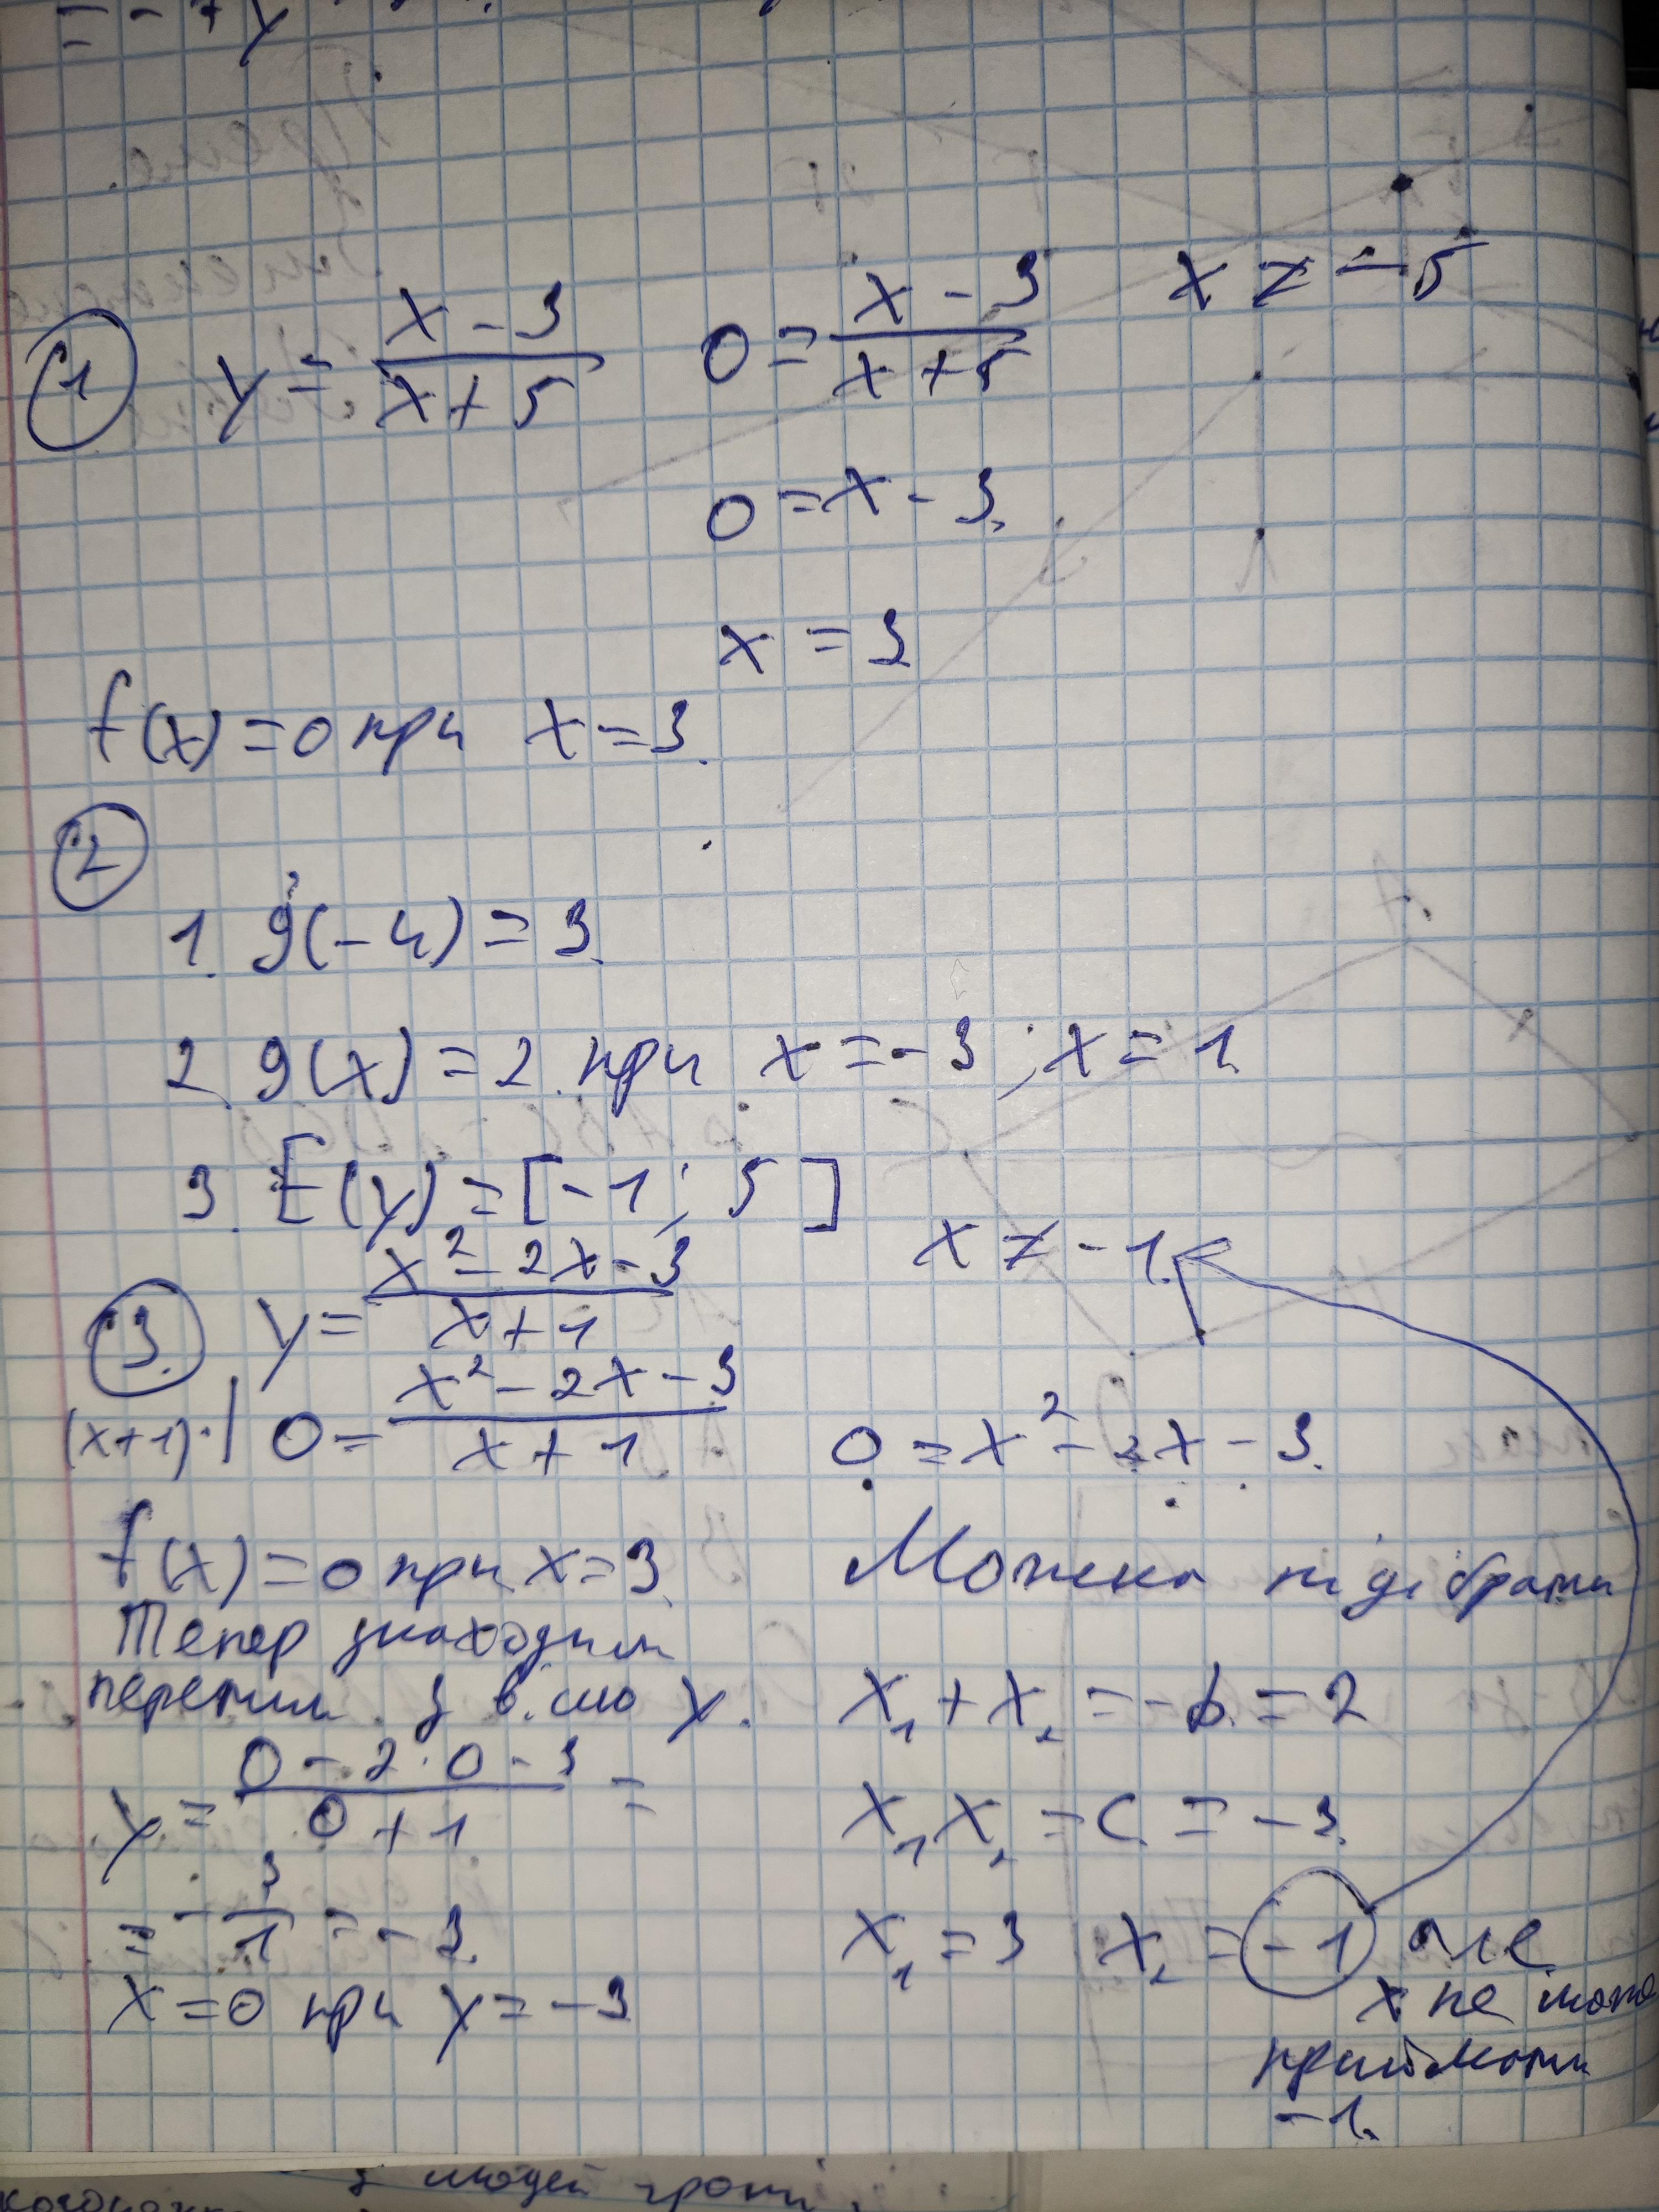 = - 7y
1 y = (x - 3)/(x + 5) 0 = (x - 3)/(x + 5) x ≠ -5
0 = x - 3.
x = 3
f(x) = 0 при x = 3.
2
1. g(-4) = 3.
2. g(x) = 2 при x = -3; x = 1.
3. E(y) = [-1; 5]
3. y = (x² - 2x - 3)/(x + 1) x ≠ -1.
(x+1)·| 0 = (x² - 2x - 3)/(x + 1) 0 = x² - 2x - 3.
f(x) = 0 при x = 3. Можна підібрати
Тепер знаходим
перетин з віссю y. x₁ + x₂ = -b = 2
y = (0 - 2·0 - 3)/(0 + 1) = x₁x₂ = c = -3.
= -3/1 = -3. x₁ = 3 x₂ = -1 але
x = 0 при y = -3 x не може
приймати
-1.
з людей грати